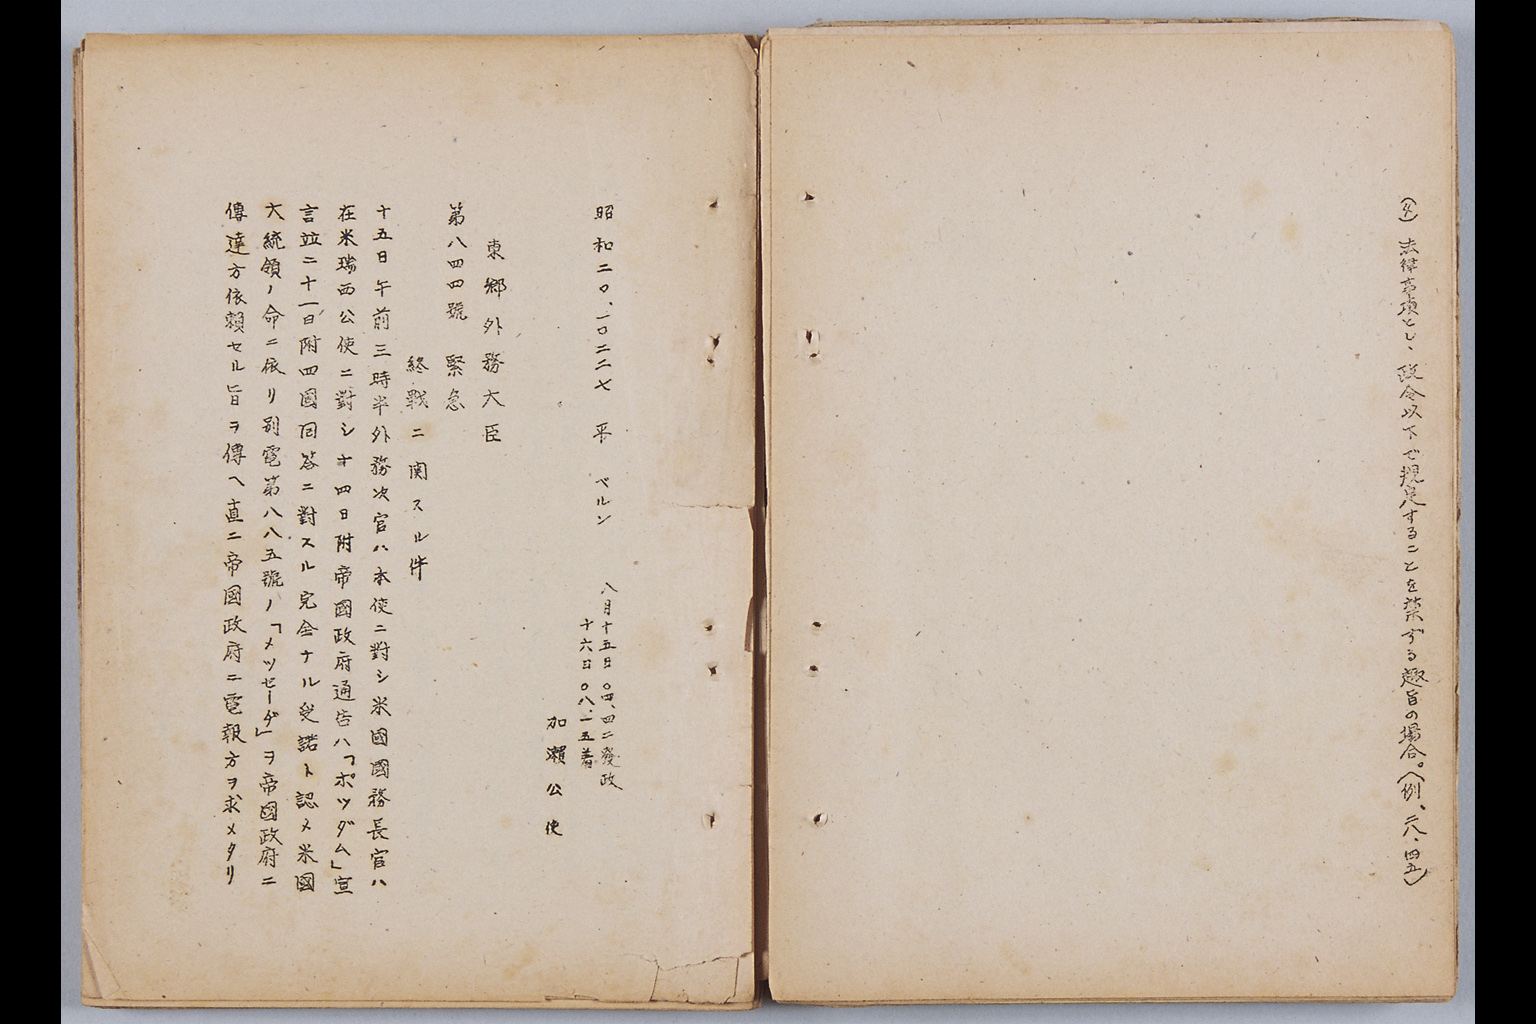 法律事項とし、政令以下で規定することを禁ずる趣旨の場合。(例、二八、四五)
昭和二〇、一〇二二七 平 ベルン 八月十五日〇四、四二發 政
十六日〇八、一五着
加瀬公使
東郷外務大臣
第八四四號 緊急
終戰ニ関スル件
十五日午前三時半外務次官ハ本使ニ對シ米國國務長官ハ
在米瑞西公使ニ對シ十四日附帝國政府通告ハ「ポツダム」宣
言竝ニ十一日附四國回答ニ對スル完全ナル受諾ト認メ米國
大統領ノ命ニ依リ別電第八八五號ノ「メツセーヂ」ヲ帝國政府ニ
傳達方依賴セル旨ヲ傳ヘ直ニ帝國政府ニ電報方ヲ求メタリ